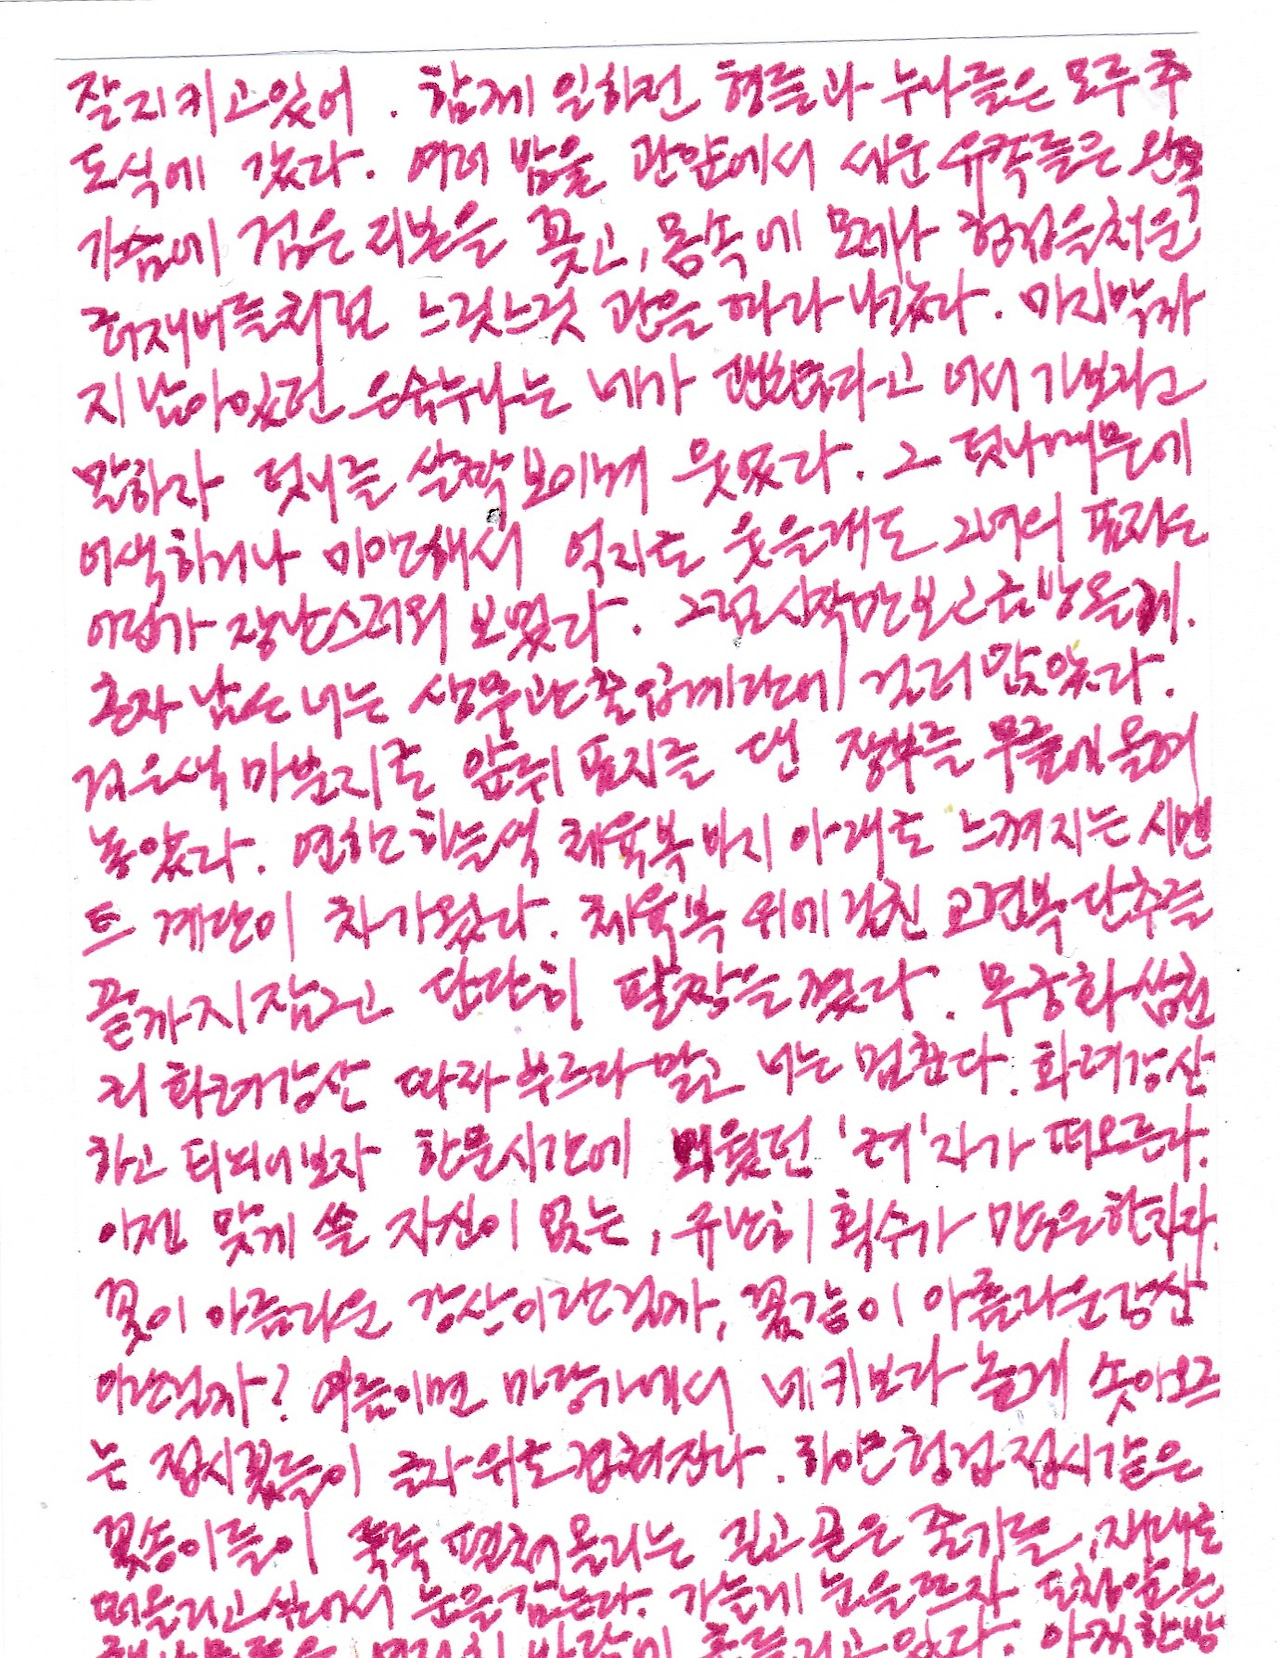 잘 지키고 있어. 함께 일하던 형들과 누나들은 모두 추
도식에 갔다. 여러 밤을 관 앞에서 새운 유족들은 왼쪽
가슴에 검은 리본을 꽂고, 몸속에 모래나 헝겊을 채운
허재비들처럼 느릿느릿 관을 따라 나갔다. 마지막까
지 남아 있던 은숙 누나는 네가 괜찮다고 어서 가보라고
말하자 덧니를 살짝 보이며 웃었다. 그 덧니 때문에
어색하거나 미안해서 억지로 웃을 때도 그녀의 표정은
어딘가 장난스러워 보였다. 그럼 시작만 보고 금방 올게.
혼자 남은 너는 상무관 출입 계단에 걸터앉았다.
검은색 마분지를 앞뒤 표지를 댄 장부를 무릎에 올려
놓았다. 연한 하늘색 체육복 바지 아래로 느껴지는 시멘
트 계단이 차가웠다. 체육복 위에 걸친 교련복 단추를
끝까지 잠그고 단단히 팔짱을 꼈다. 무궁화 삼천
리 화려강산 따라 부르다 말고 너는 멈춘다. 화려강산
하고 되뇌어보자 한문시간에 외웠던 '려'자가 떠오른다.
이젠 맞게 쓸 자신이 없는, 유난히 획수가 많은 한자다.
꽃이 아름다운 강산이란 걸까, 꽃같이 아름다운 강산
이란 걸까? 여름이면 마당가에서 네 키보다 높게 솟아오르
는 접시꽃들이 글자 위로 겹쳐진다. 하얀 헝겊 접시 같은
꽃송이들이 툭툭 펼쳐 올리는 길고 곧은 줄기들, 제대로
떠올리고 싶어서 눈을 감는다. 가늘게 눈을 뜨자 도청 앞 은